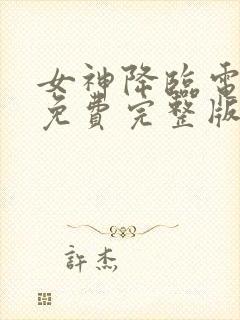 女神降臨電
免費完整版
許杰